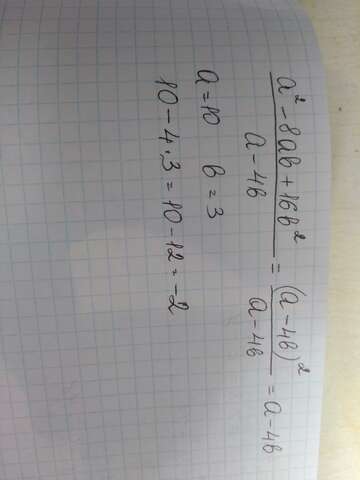 a² - 8ab + 16b² / a - 4b = (a - 4b)² / a - 4b = a - 4b
a = 10 b = 3
10 - 4 · 3 = 10 - 12 = -2